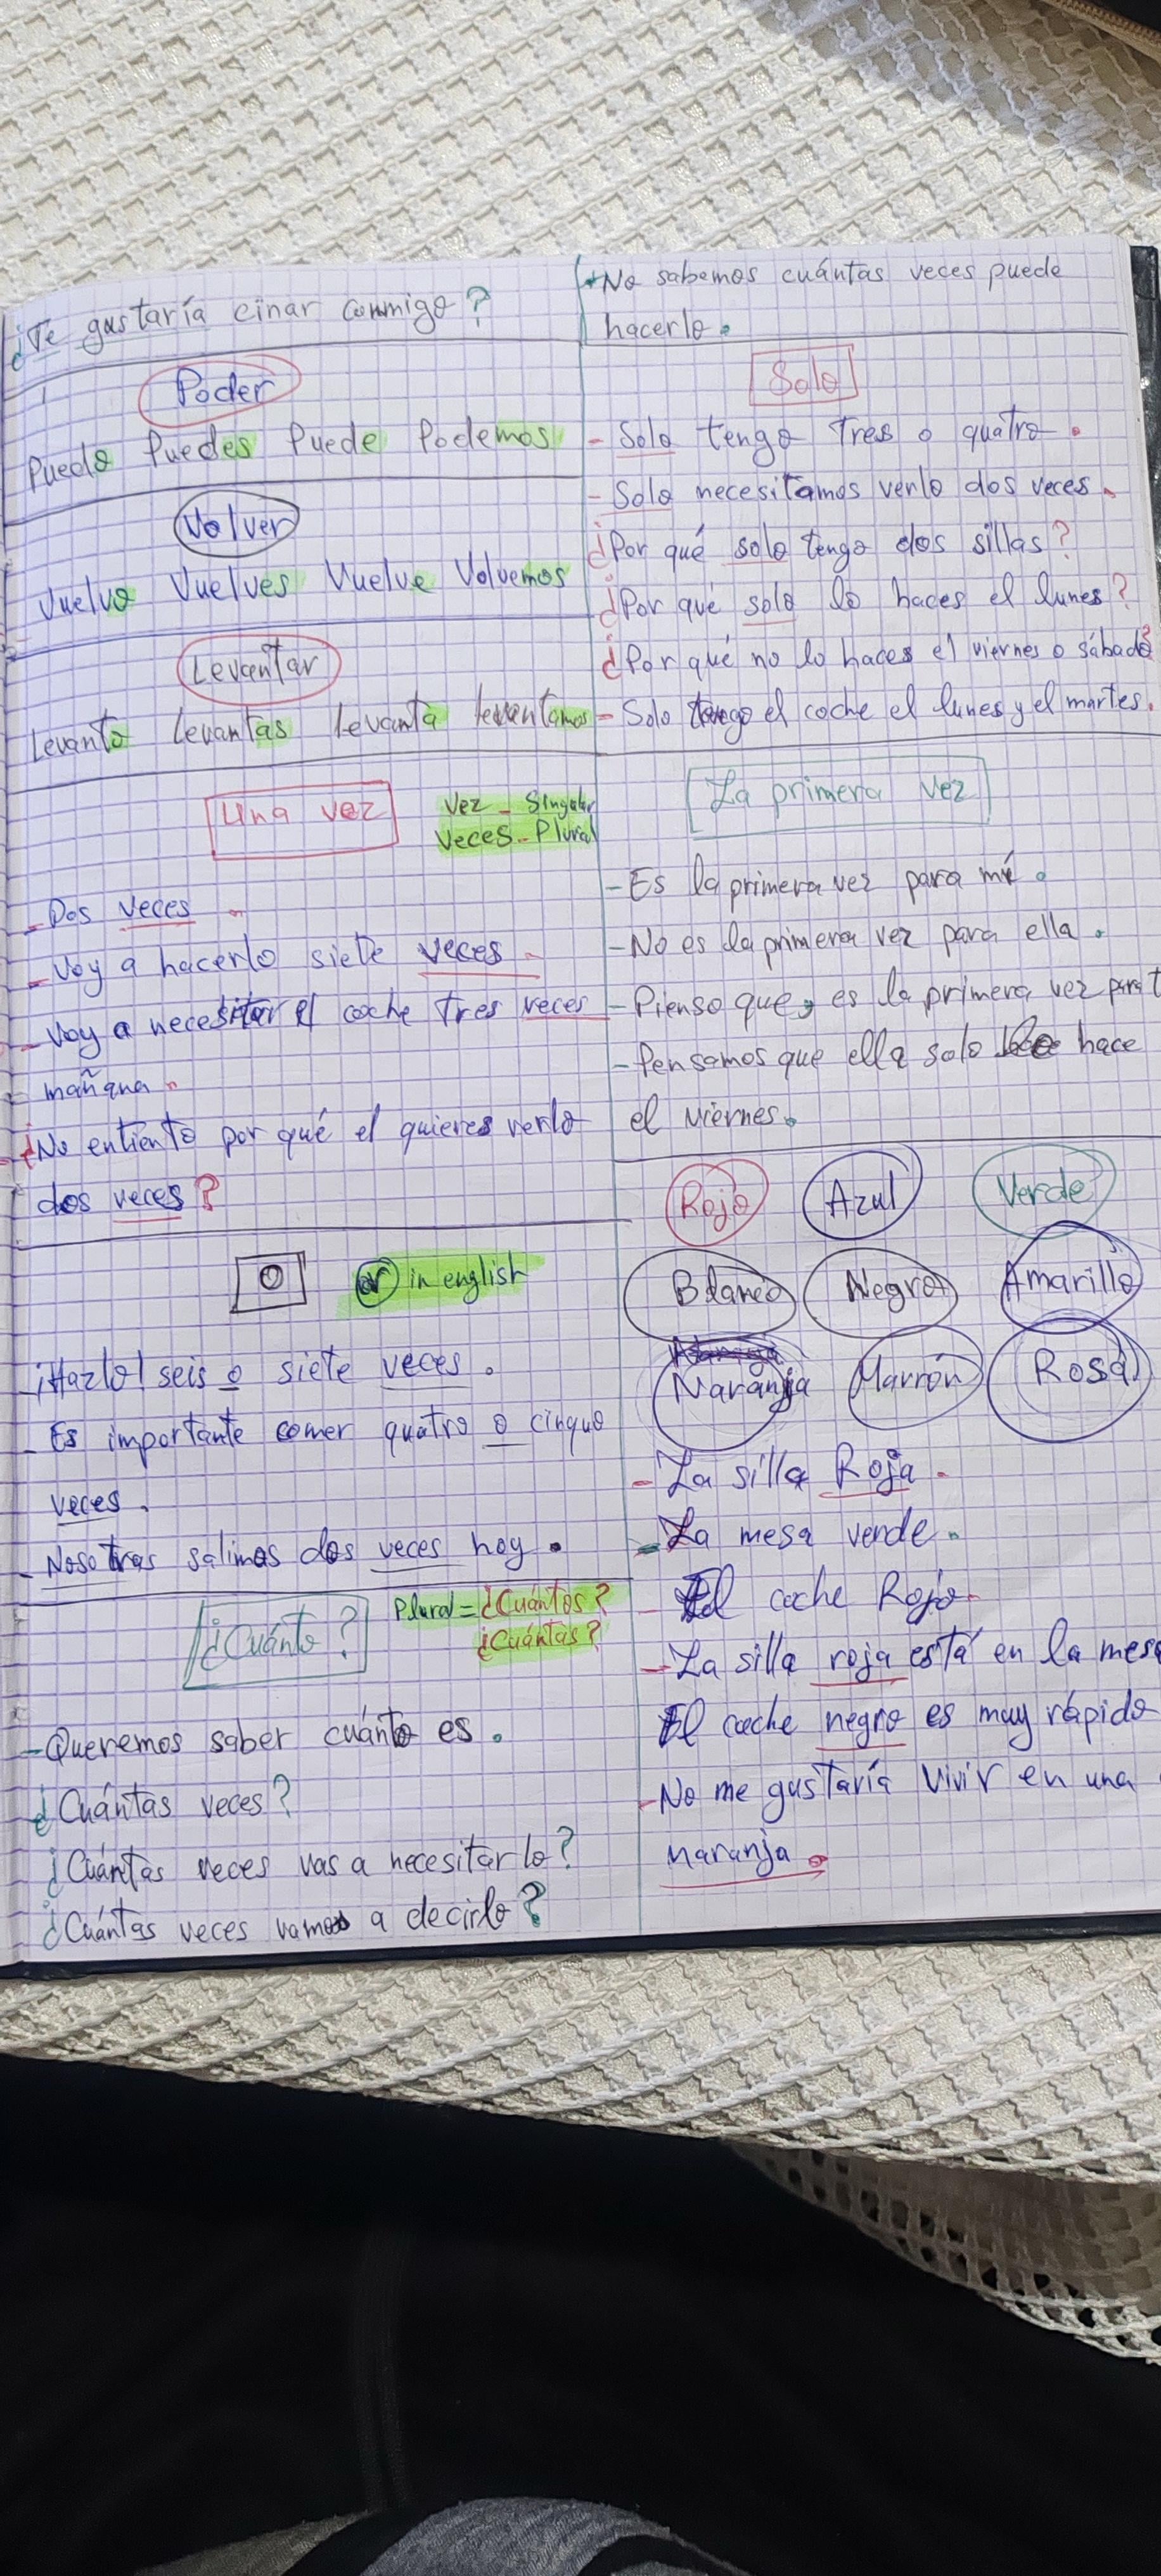 ¿Te gustaría cinar conmigo?
Poder
Puedo Puedes Puede Podemos
Volver
Vuelvo Vuelves Vuelve Volvemos
Levantar
Levanto Levantas Levanta levantamos
Una vez
Vez - Singular
Veces - Plural
- Dos veces -
- Voy a hacerlo siete veces -
- Voy a necesitar el coche tres veces
mañana.
- ¿No entiento por qué el quieres verlo
dos veces?
O
or in english
- ¡Hazlo! seis o siete veces.
- Es importante comer quatro o cinquo
veces.
- Nosotros salimos dos veces hoy.
¿Cuánto?
Plural = ¿Cuántos?
¿Cuántas?
- Queremos saber cuánto es.
¿Cuántas veces?
¿Cuántas veces vas a necesitarlo?
¿Cuántas veces vamos a decirlo?
- No sabemos cuántas veces puede
hacerlo.
Solo
- Solo tengo tres o quatro.
- Solo necesitamos verlo dos veces.
¿Por qué solo tengo dos sillas?
¿Por qué solo lo haces el lunes?
¿Por qué no lo haces el viernes o sábado?
- Solo tengo el coche el lunes y el martes.
La primera vez
- Es la primera vez para mí.
- No es la primera vez para ella.
- Pienso que, es la primera vez para t
- Pensamos que ella solo lo hace
el viernes.
Rojo Azul Verde
Blanco Negro Amarillo
Naranja Marrón Rosa
- La silla Roja -
- La mesa verde.
- El coche Rojo -
- La silla roja está en la mesa
El coche negro es muy rápido
- No me gustaría vivir en una
naranja.